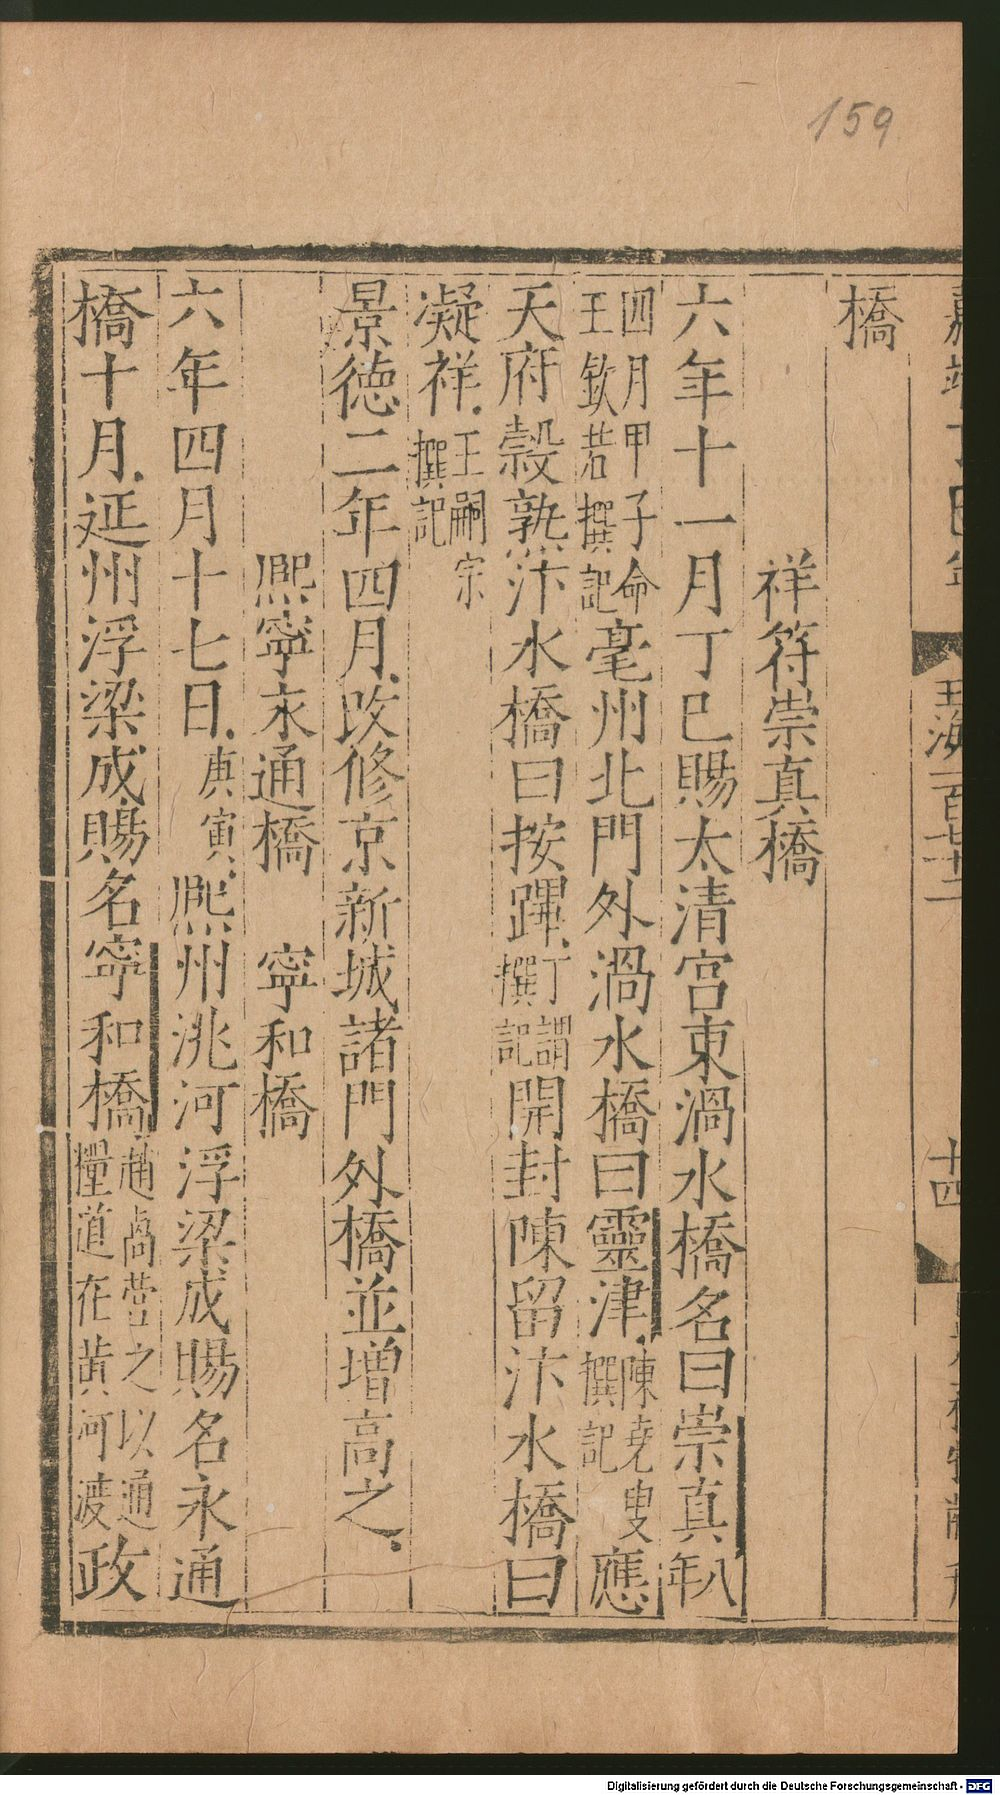 159
玉海一百七十二
十四
橋
祥符崇真橋
六年十一月丁巳賜太清宮東渦水橋名曰崇真八年
四月甲子命王欽若撰記亳州北門外渦水橋曰靈津陳堯叟撰記應
天府穀熟汴水橋曰按蹕丁謂撰記開封陳留汴水橋曰
凝祥王嗣宗撰記
景德二年四月改修京新城諸門外橋並増高之
熈寧永通橋 寧和橋
六年四月十七日庚寅熈州洮河浮梁成賜名永通
橋十月延州浮梁成賜名寧和橋趙卨營之以通糧道在黄河渡政
Digitalisierung gefördert durch die Deutsche Forschungsgemeinschaft - DFG